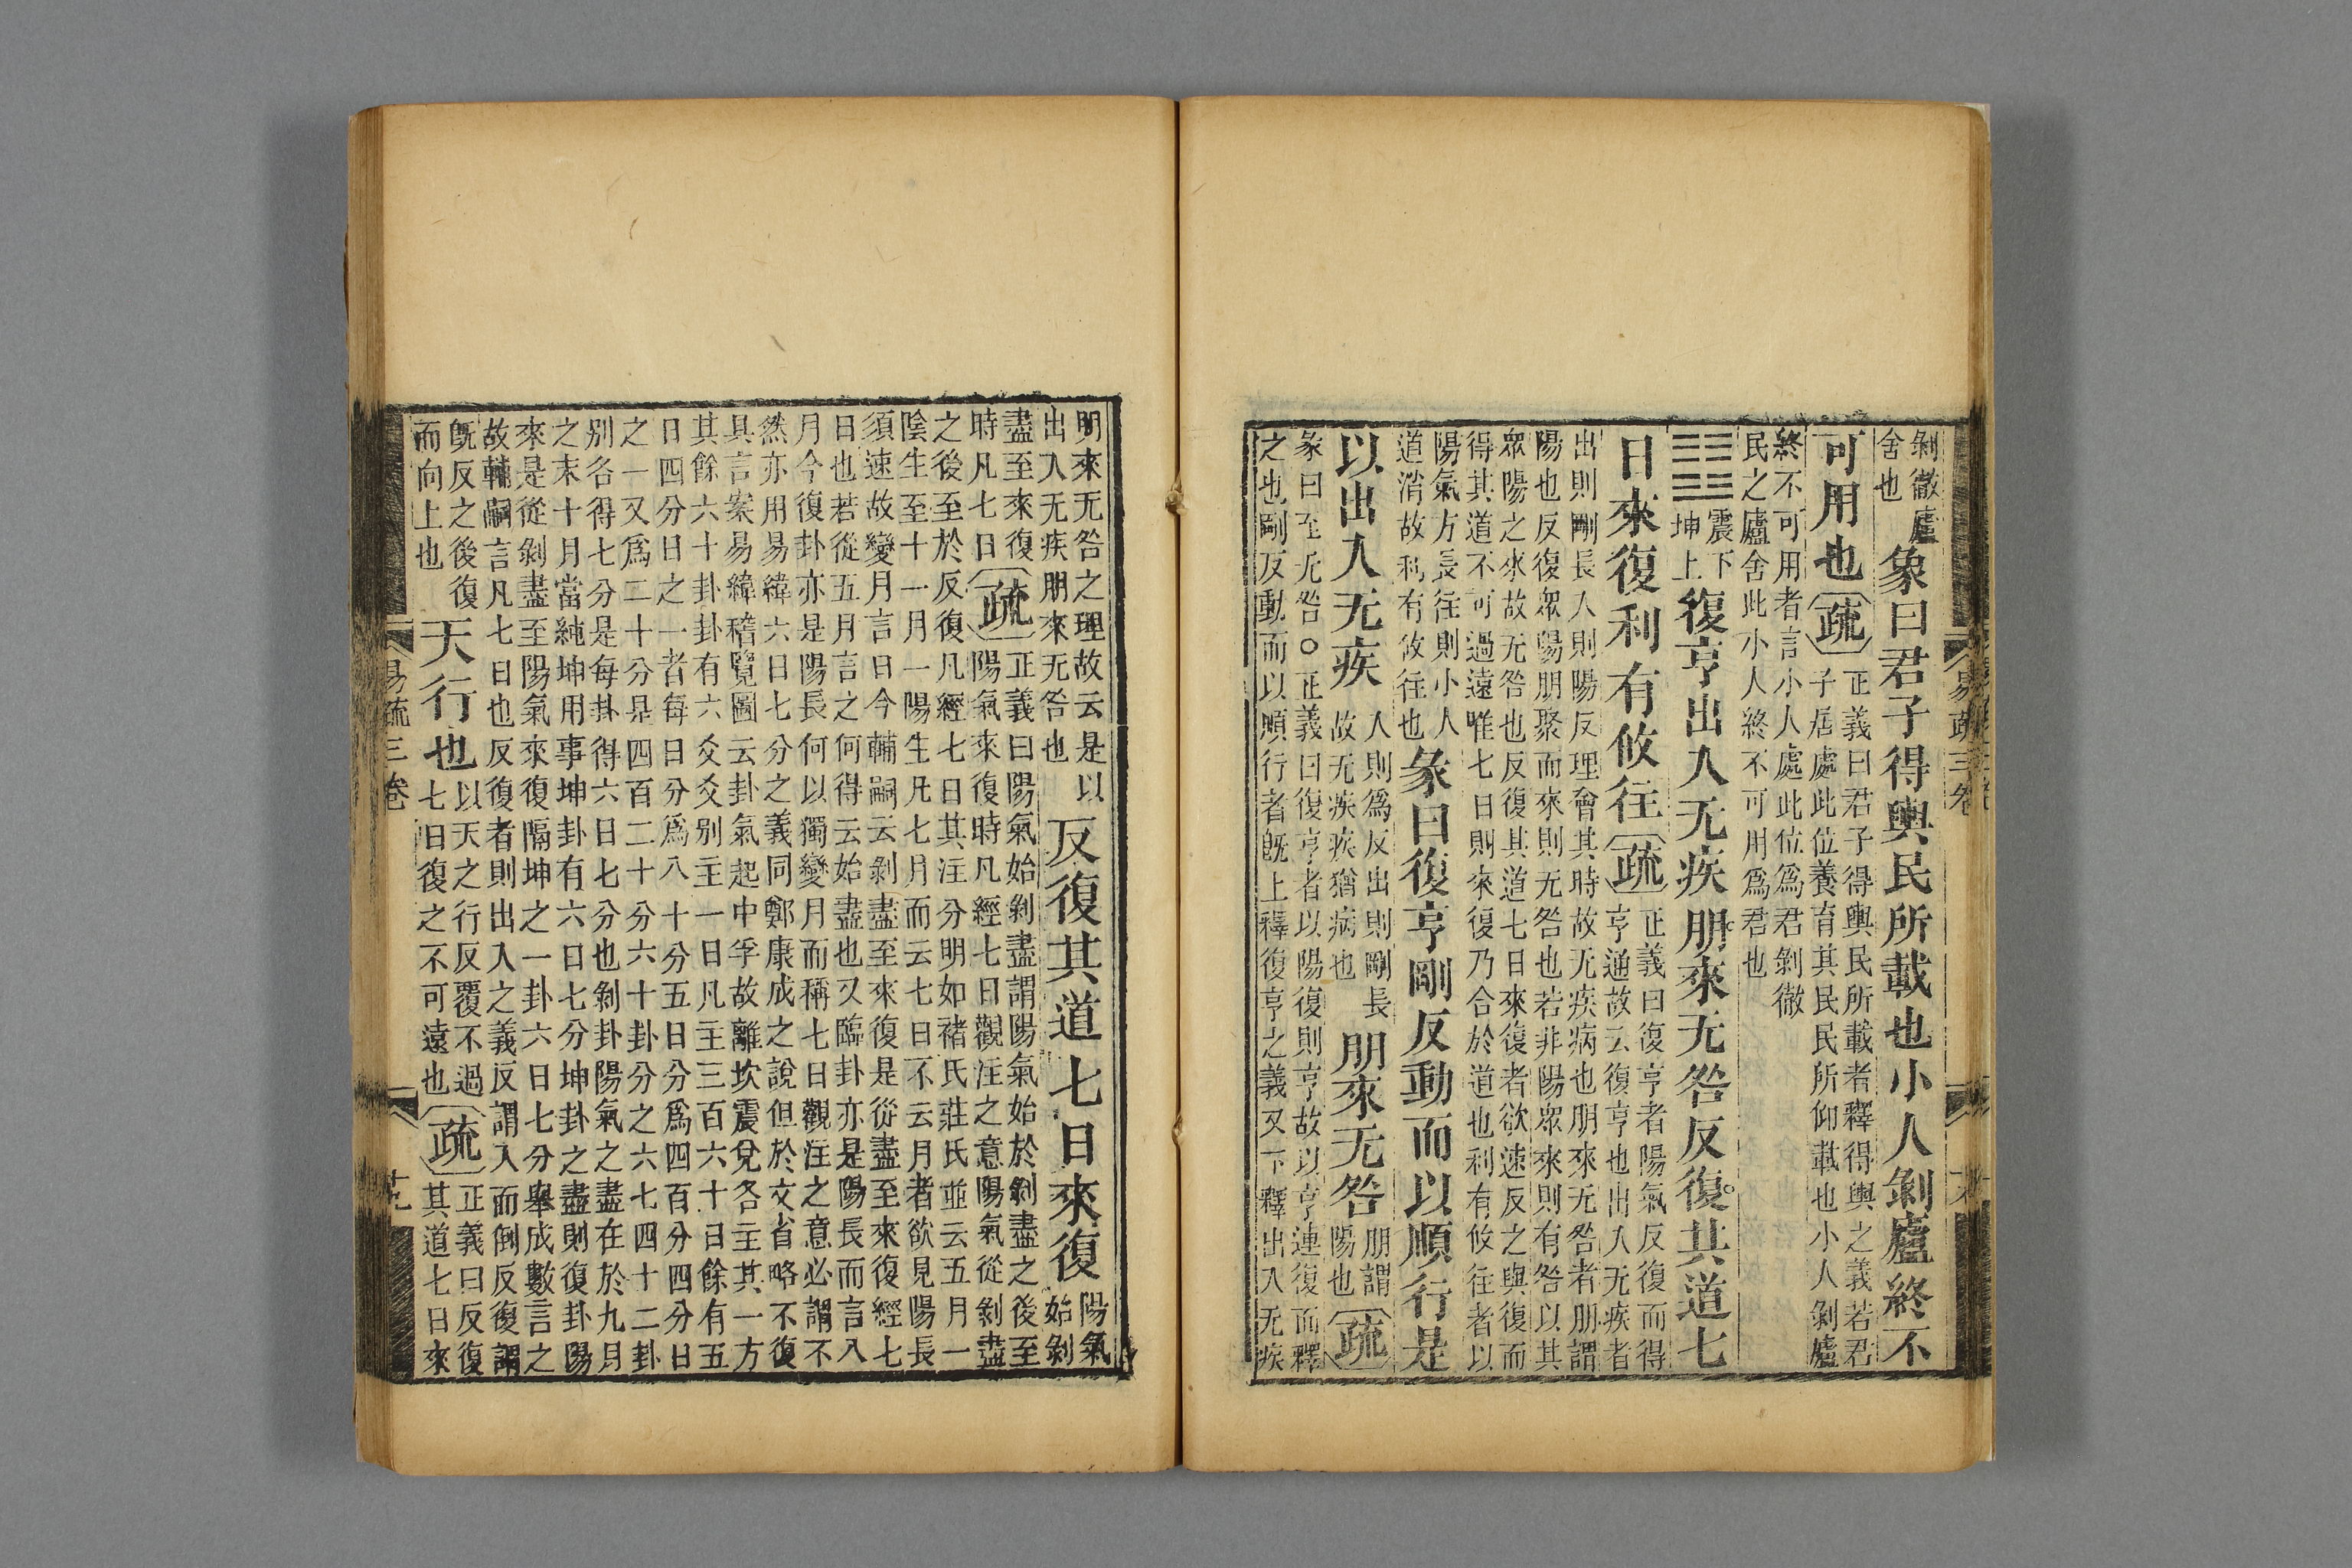 剝徹廬
舍也
象曰君子得輿民所載也小人剝廬終不
可用也疏
正義曰君子得輿民所載者釋得輿之義若君
子居處此位養育其民民所仰載也小人剝廬
終不可用者言小人處此位爲君剝徹
民之廬舍此小人終不可用爲君也
䷗
震下
坤上
復亨出入无疾朋來无咎反復其道七
日來復利有攸往疏
正義曰復亨者陽氣反復而得
亨通故云復亨也出入无疾者
出則剛長入則陽反理會其時故无疾病也朋來无咎者朋謂
陽也反復衆陽朋聚而來則无咎也若非陽衆來則有咎以其
衆陽之來故无咎也反復其道七日來復者欲速反之與復而
得其道不可過遠唯七日則來復乃合於道也利有攸往者以
陽氣方長往則小人
道消故利有攸往也
彖曰復亨剛反動而以順行是
以出入无疾
入則爲反出則剛長
故无疾疾猶病也
朋來无咎
朋謂
陽也
疏
彖曰至无咎○正義曰復亨者以陽復則亨故以亨連復而釋
之也剛反動而以順行者旣上釋復亨之義又下釋出入无疾
明來无咎之理故云是以
出入无疾朋來无咎也
反復其道七日來復
陽氣
始剝
盡至來復
時凡七日
疏
正義曰陽氣始剝盡謂陽氣始於剝盡之後至
陽氣來復時凡經七日觀注之意陽氣從剝盡
之後至於反復凡經七日其注分明如褚氏莊氏並云五月一
陰生至十一月一陽生凡七月而云七日不云月者欲見陽長
須速故變月言日今輔嗣云剝盡至來復是從盡至來復經七
日也若從五月言之何得云始盡也又臨卦亦是陽長而言八
月今復卦亦是陽長何以獨變月而稱七日觀注之意必謂不
然亦用易緯六日七分之義同鄭康成之說但於文省略不復
具言案易緯稽覽圖云卦氣起中孚故離坎震兌各主其一方
其餘六十卦卦有六爻爻別主一日凡主三百六十日餘有五
日四分日之一者每日分爲八十分五日分爲四百分四分日
之一又爲二十分是四百二十分六十卦分之六七四十二卦
別各得七分是每卦得六日七分也剝卦陽氣之盡在於九月
之末十月當純坤用事坤卦有六日七分坤卦之盡則復卦陽
來是從剝盡至陽氣來復隔坤之一卦六日七分舉成數言之
故輔嗣言凡七日也反復者則出入之義反謂入而倒反復謂
旣反之後復
而向上也
天行也
以天之行反覆不過
七日復之不可遠也
疏
正義曰反復
其道七日來
易疏三卷
十九
易疏三卷